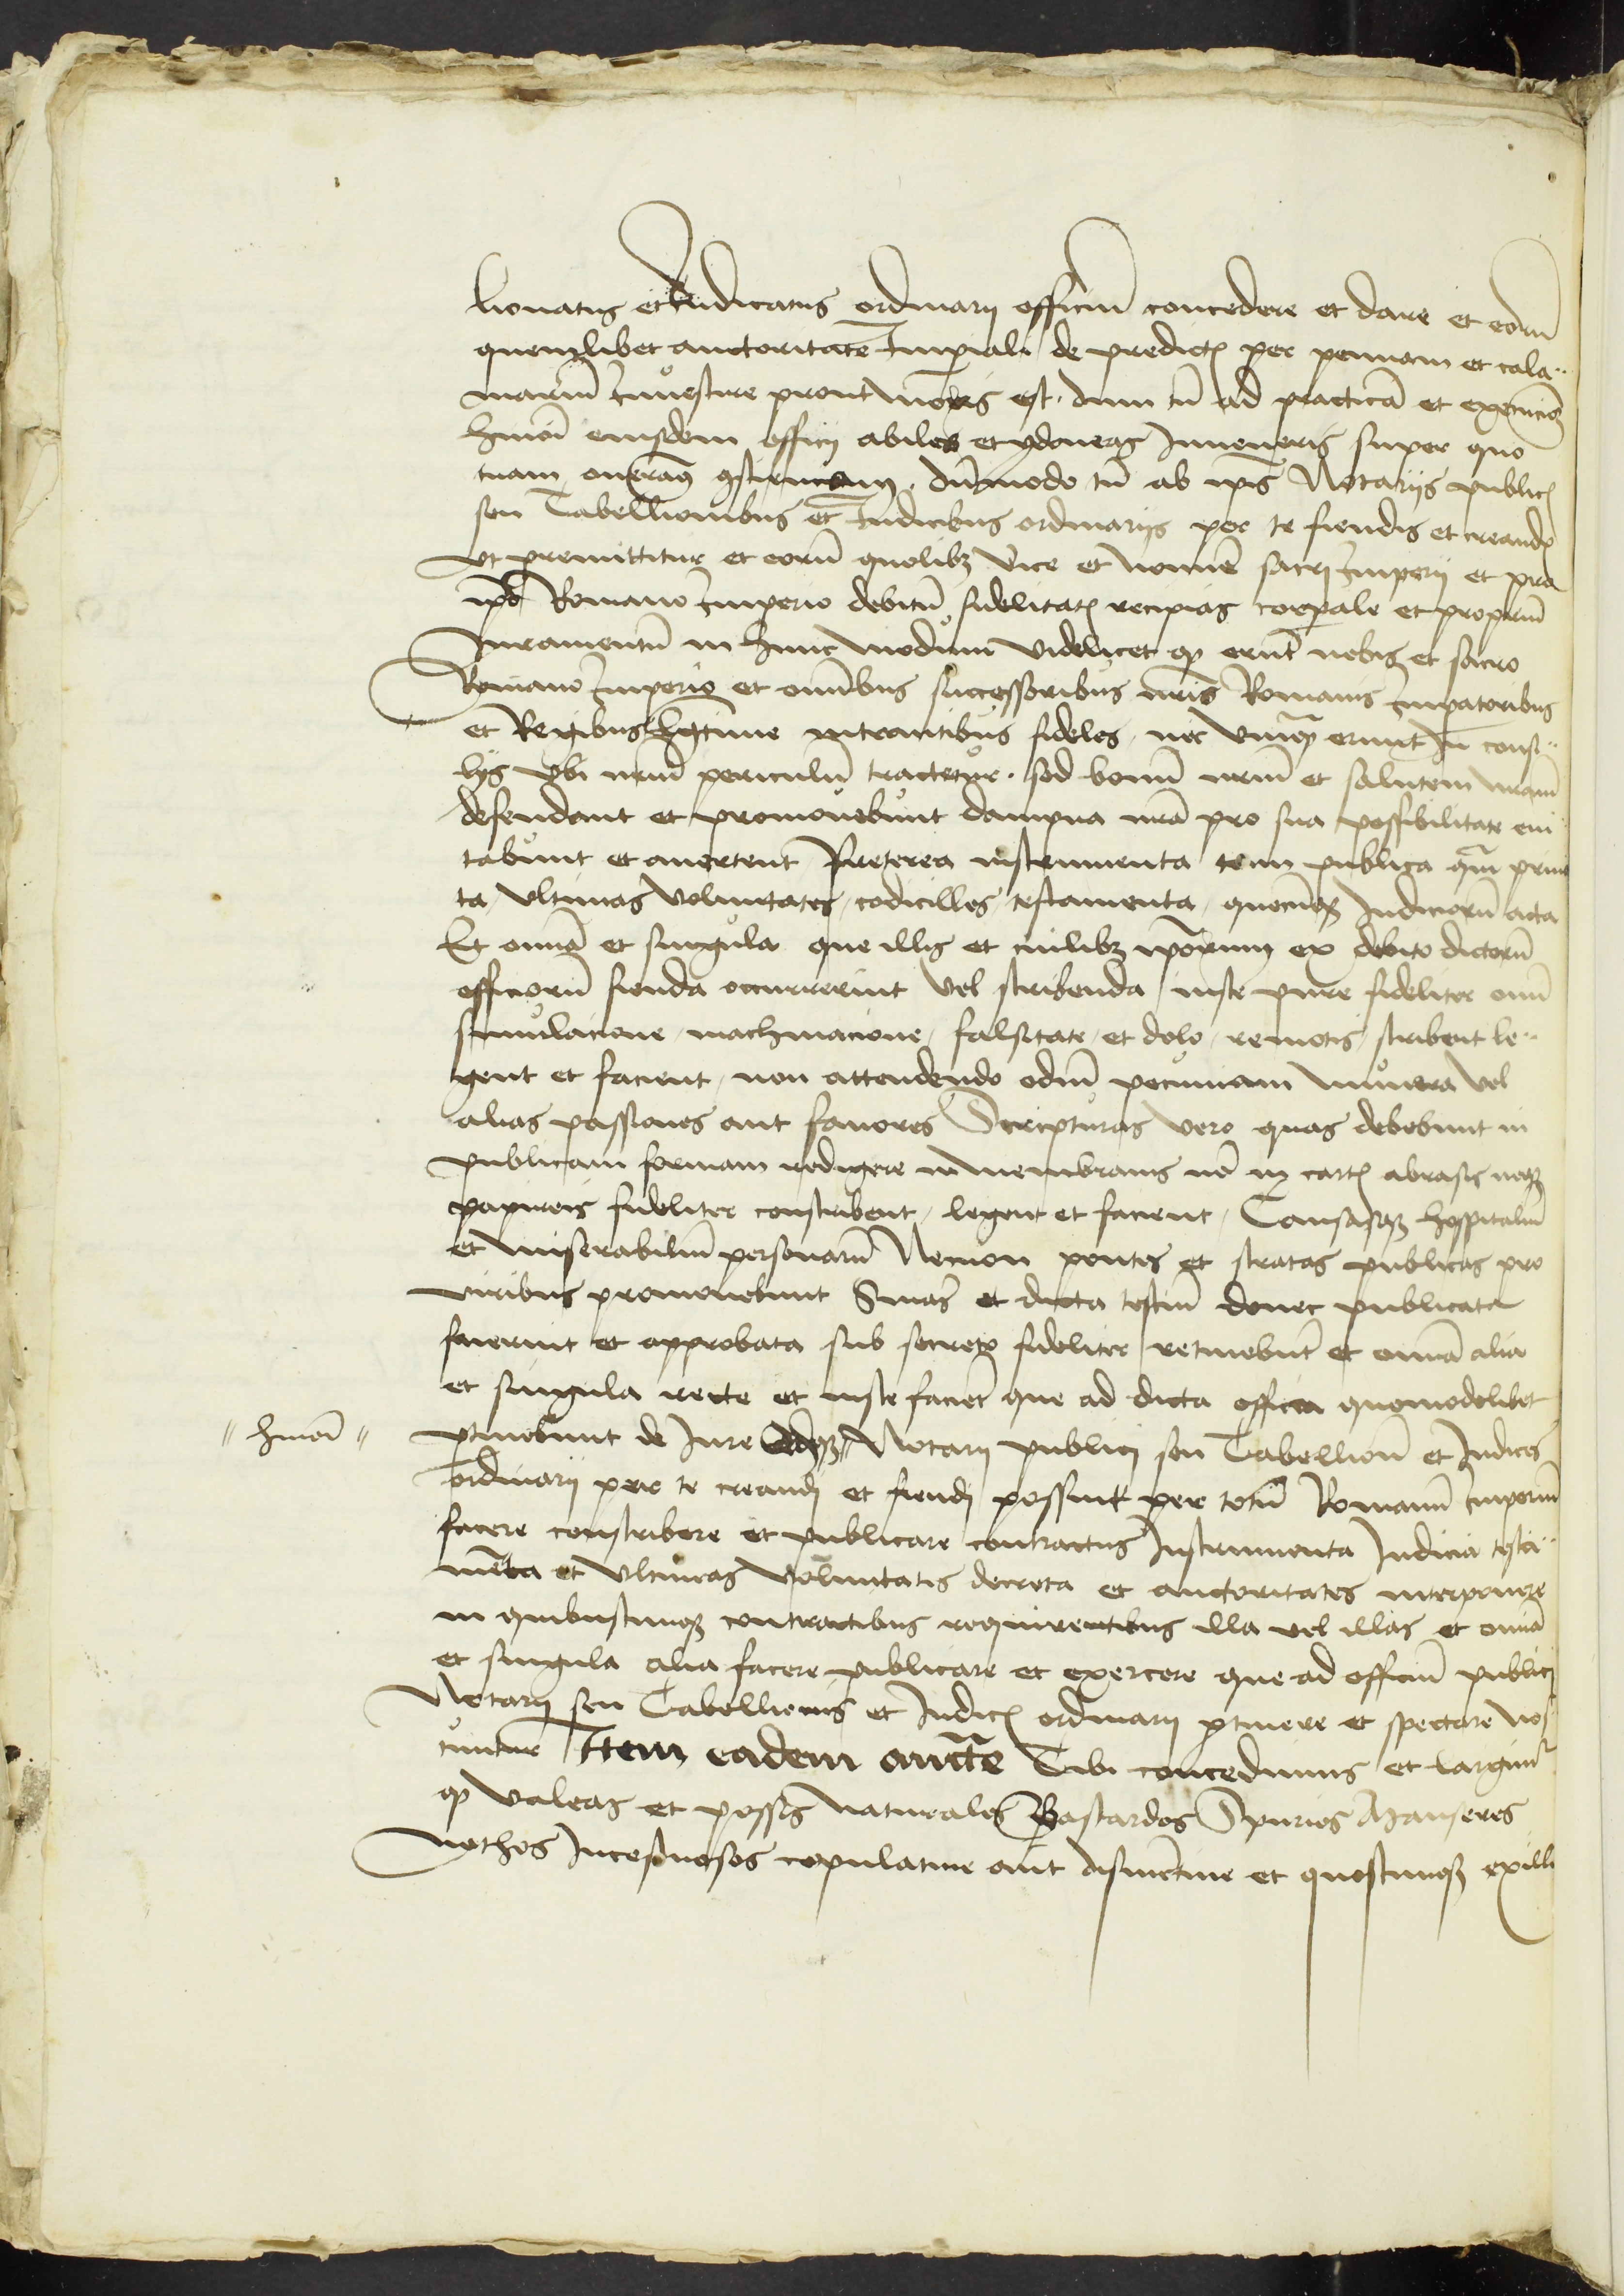 lionatus et Iudicatus ordinarij officiū concedere et dare et eorū
quemlibet auctoritate Imperiali de predict̄ per pennam et cala..
mariū Inuestire prout moris est. dum tn̄ ad practicā et execuciōȝ
hmōi eiusdem officij abiles et ydoneas Inueneris super quo
tuam oneram9 9scienciam. dūmodo tn̄ ab ip̄is Notarijs public̄
seu Tabellionibus et Iudicibus ordinarijs per te fiendis et creand̄
vt premittitur et eorū quolibȝ vice et nomīe sacri Imperij et pro
ip̄o Romano Imperio debitū fidelitat̄ recipias corpale et propriū
Iuramentū in hunc modum videlicet qp erūt nobis et sacro
Romano Imperio et omībus successoribus nr̄is Romanis Impatoribus
et Regibus legittime intrantibus fideles, nec vmqȝ erunt In consi..
lijs vbi nrm̄ periculū tractetur. sed bonū nrm̄ et salutem nram̄
defendant et promouebunt dampna nrā pro sua possibilitate eui
tabunt et auertent Preterea instrumenta tam publica qm̄ priua
ta, vltimas voluntates, codicilles, testamenta, quecūqȝ Iudiciorū acta
Et omā et singula que illis et cuilibȝ ipōrum ex debito dictorū
officiorū fienda occurrerint vel scribenda iuste pure fideliter omī
simulacione, machinacione, falsitate, et dolo, remotis scribent le..
gent et facient, non attendendo odiū pecuniam munera vel
alias passiones aut fauores Scripturas vero quas debebunt in
publicam formam redigere in membranis nō in cart̄ abrasis neqȝ
papireis fideliter conscribent, legent et facient, Causasqȝ hospitaliū
et miserabiliū personarū Necnon pontes et stratas publicas pro
viribus promouebunt Sn̄ias et dicta testiū donec publicata
fuerint et approbata sub secreto fideliter retinebūt et omā alia
et singula recte et iuste faciēt que ad dicta officia quomodolibet
" hmōi " ptinebunt de Iure Notarij publici seu Tabellionū et Iudices
ordinarij per te creandi et fiendi possint per totū Romanū Imperiū
facere conscribere et publicare contractus Instrumenta Iudicia testa..
mēta et vltimas voluntatis decreta et auctoritates interponere
in quibuscumqȝ contractibus requirentibus illa vel illas et omīa
et singula alia facere publicare et exercere que ad officiū publici
Notarij seu Tabellionis et Iudic̄ ordinarij ptinere et spectare nos
cuntur Item eadem auctte Tibi concedimus et largim2
qp valeas et possis naturales Bastardos Spurios Manseres
Nothos Incestuosos copulatiue aut disiūctiue et quoscumqȝ exilli